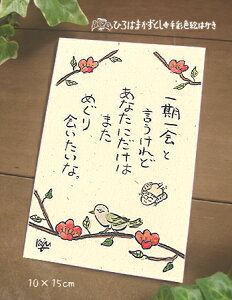 ひろはまかずとし手彩色絵はがき
一期一会と
言うけれど
あなたにだけは
また
めぐり
会いたいな。
10×15cm